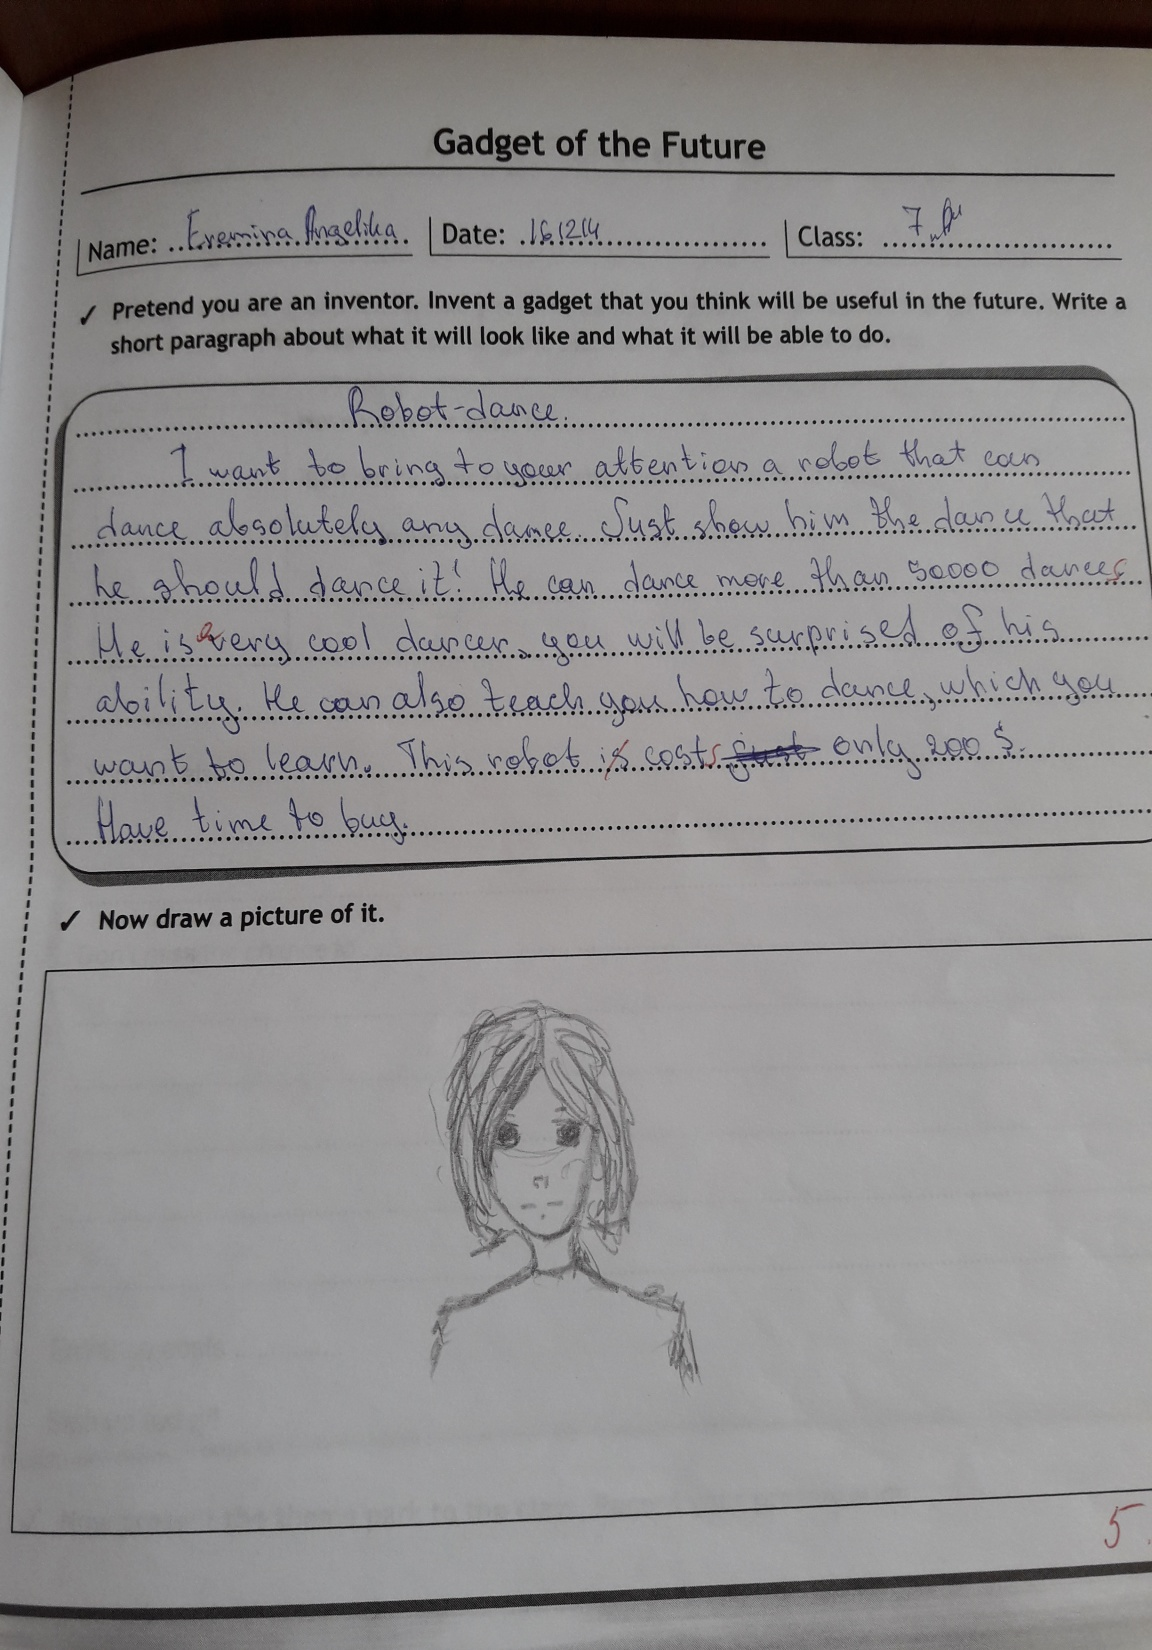 Gadget of the Future
Name: Eremina Angelika Date: 16.12.14 Class: 7
✓ Pretend you are an inventor. Invent a gadget that you think will be useful in the future. Write a
short paragraph about what it will look like and what it will be able to do.
Robot-dance.
I want to bring to your attention a robot that can
dance absolutely any dance. Just show him the dance that
he should dance it! He can dance more than 50000 dances
He is a very cool dancer, you will be surprised of his
ability. He can also teach you how to dance, which you
want to learn. This robot is costs just only 200 $.
Have time to buy.
✓ Now draw a picture of it.
5.